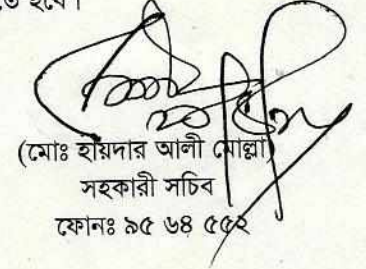 হবে।
(মোঃ হায়দার আলী মোল্লা)
সহকারী সচিব
ফোনঃ ৯৫ ৬৪ ৫৫২